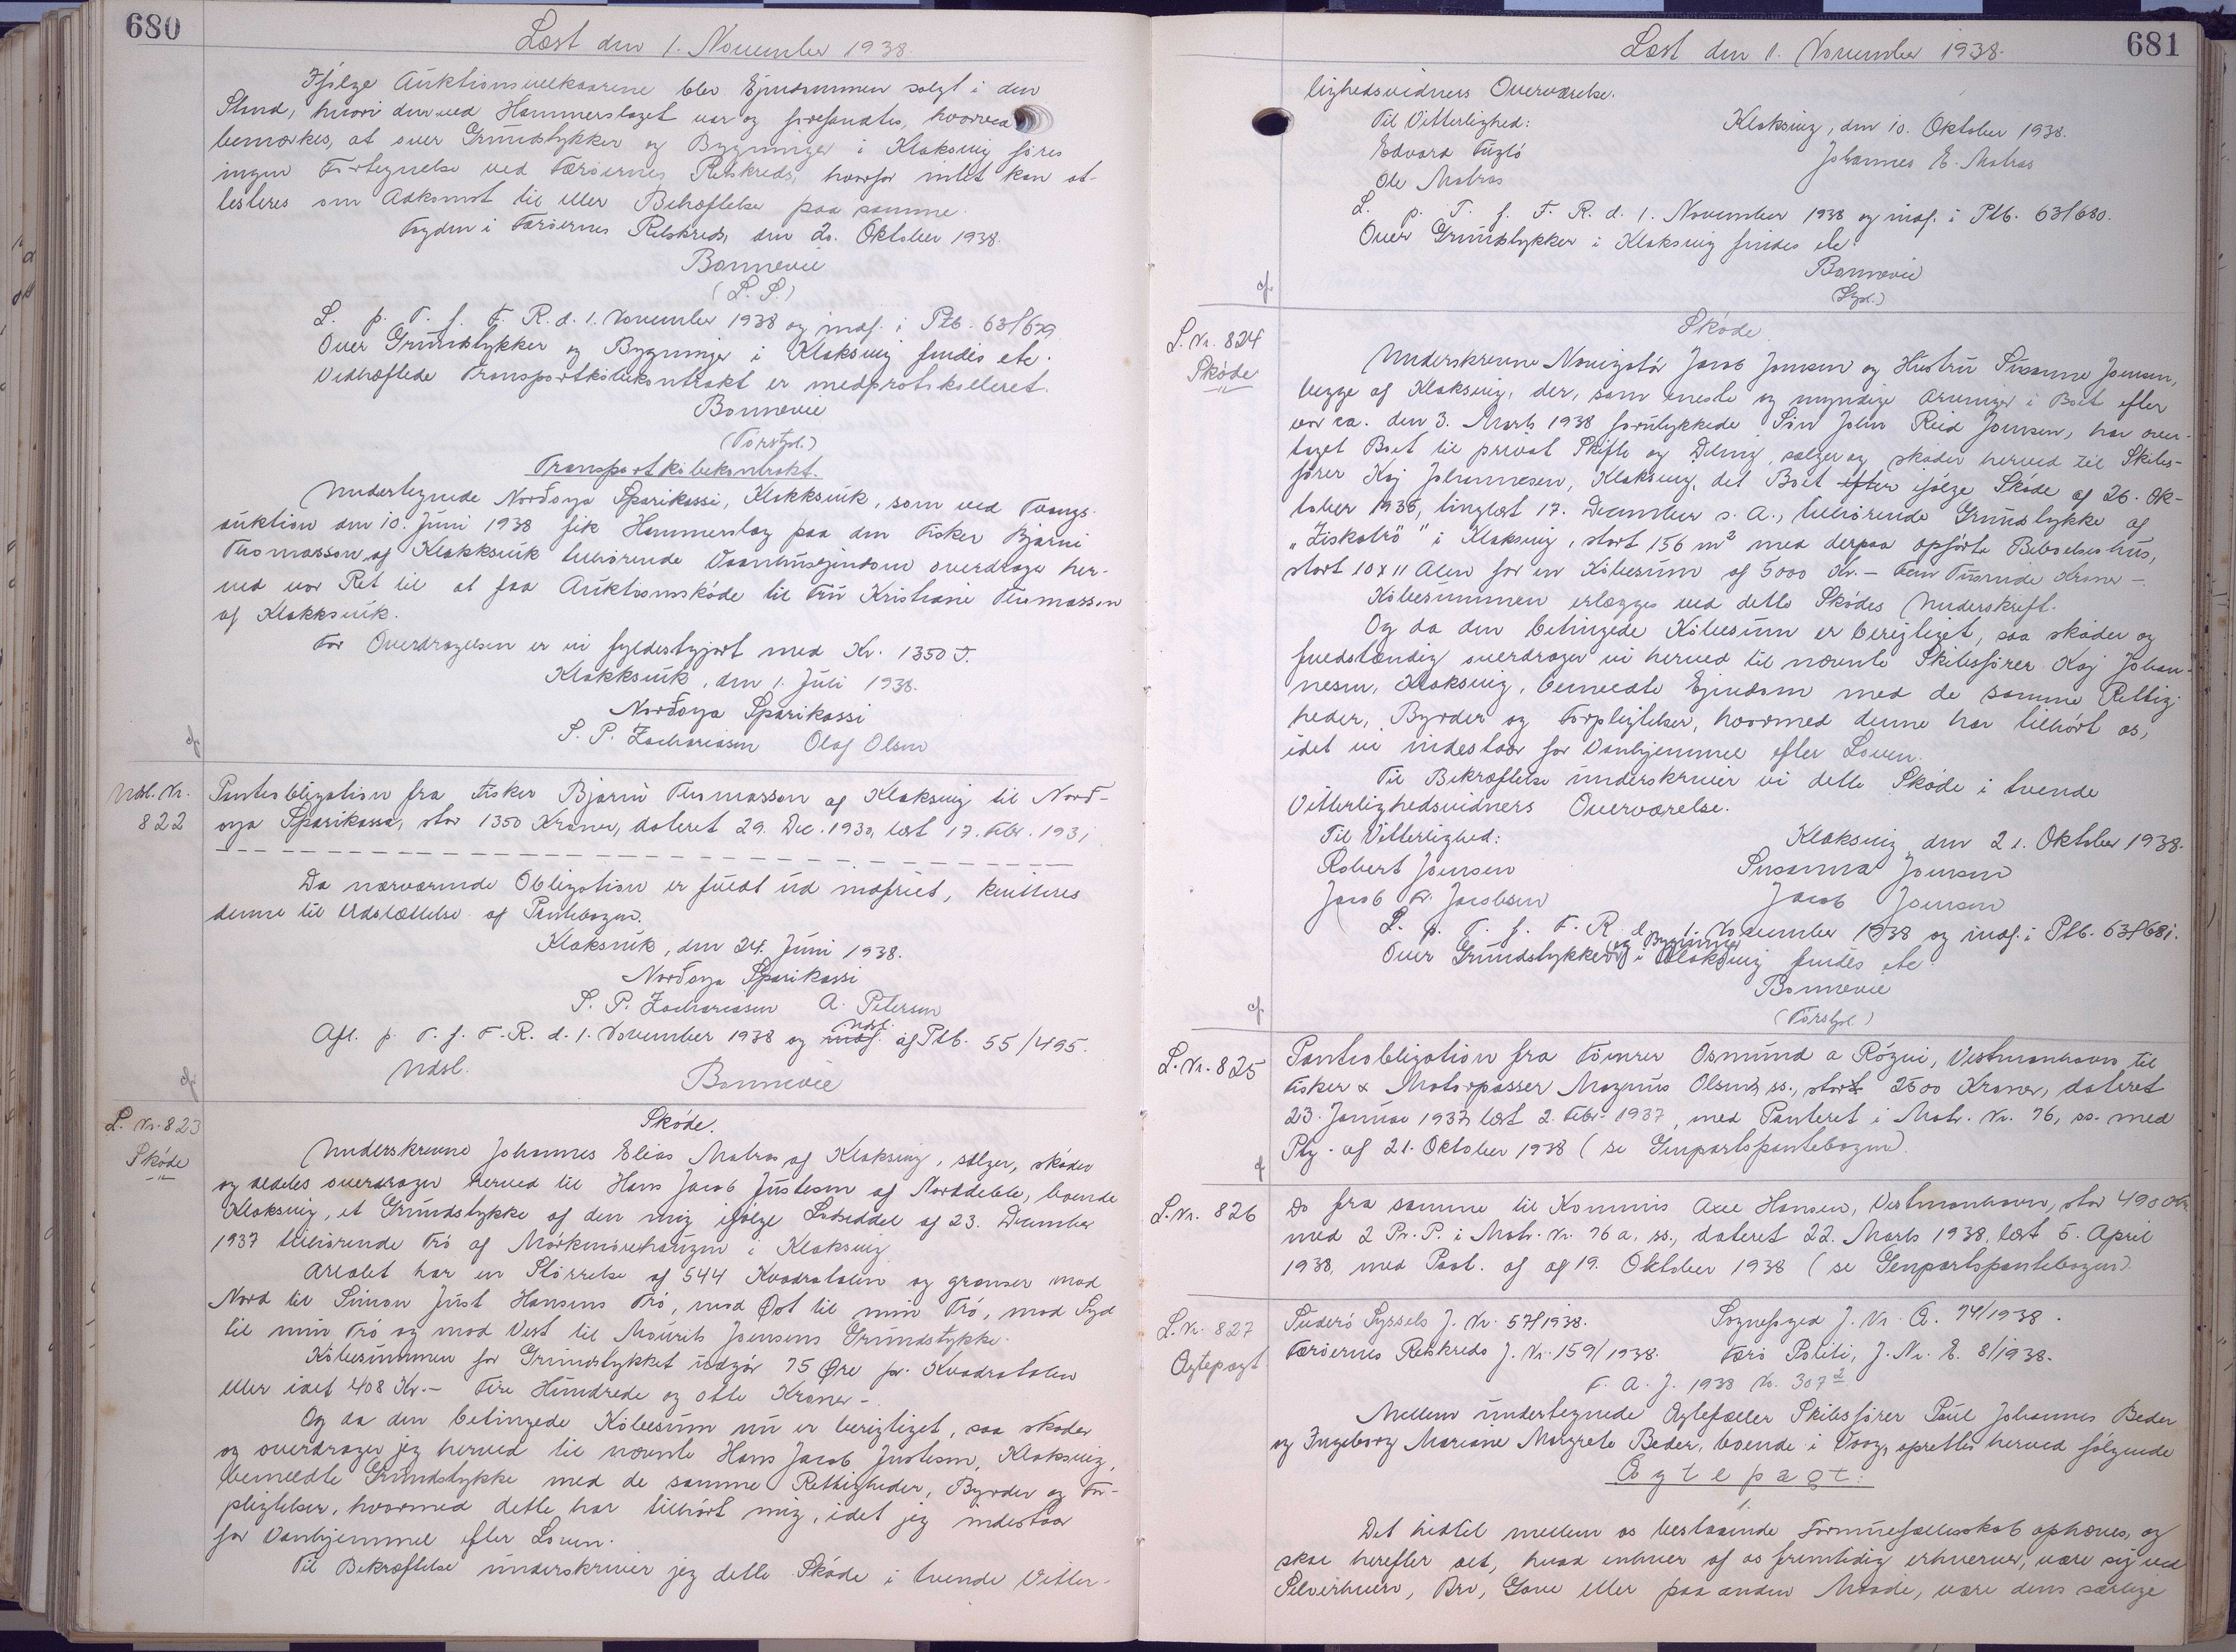 680
Læst den 1. November 1938.
Ifølge Auktionsvilkaarene blev Ejendommen solgt i den
Stand, hvori den ved Hammerslaget var og forefandtes, hvorved
bemærkes, at over Grundstykker og Bygninger i Klaksvig føres
ingen Fortegnelse ved Færøernes Retskreds, hvorfor intet kan at-
testeres om Adkomst til eller Behæftelse paa samme.
Fogden i Færøernes Retskreds, den 20. Oktober 1938.
Bonnevie
(L. S.)
L. p. T. f. F. R. d. 1. November 1938 og indf. i Ptb. 63/679
Over Grundstykker og Bygninger i Klaksvig findes etc.
Vedhæftede Transportkøbekontrakt er medprotokolleret.
Bonnevie
(Førstpl.)
Transportkøbekontrakt.
Undertegnede Norðoya Sparikassi, Klakksvik, som ved Tvangs-
auktion den 10. Juni 1938 fik Hammerslag paa den Fisker Bjarni
Thomasson af Klakksvik tilhørende Vaanhusejendom overdrage her-
ved vor Ret til at faa Auktionsskøde til Fru Kristiane Thomassen
af Klakksvik.
For Overdragelsen er vi fyldestgjort med Kr. 1350 .
Klakksvik, den 1. Juli 1938.
Norðoya Sparikassi
S. P. Zachariasen Olaf Olsen
cf.
Udsl. Nr.
822
Panteobligation fra Fisker Bjarni Thomasson af Klaksvig til Norð-
oya Sparikassa, stor 1350 Kroner, dateret 29. Dec. 1930, læst 17. Febr. 1931
Da nærværende Obligation er fuldt ud indfriet, kvitteres
denne til Udslettelse af Pantebogen.
Klaksvik, den 24. Juni 1938.
Norðoya Sparikassi
S. P. Zachariasen A. Petersen
Afl. p. T. f. F. R. d. 1. November 1938 og indf. udsl. af Ptb. 55/495.
Udsl.
Bonnevie
cf.
L. Nr. 823
Skøde
Skøde.
Underskrevne Johannes Elias Matras af Klaksvig, sælger, skøder
og aldeles overdrager herved til Hans Jacob Justesen af Norddeble, boende
Klaksvig, et Grundstykke af den mig ifølge Lodseddel af 23. December
1937 tilhørende Trö af Mørkmørehaugen i Klaksvig
Arealet har en Størrelse af 544 Kvadratalen og grænser mod
Nord til Simon Just Hansens Trö, mod Øst til min Trö, mod Syd
til min Trö og mod Vest til Mourits Joensens Grundstykke.
Købesummen for Grundstykket udgør 75 Øre pr. Kvadratalen
eller ialt 408 Kr. - Fire Hundrede og otte Kroner -
Og da den betingede Købesum nu er berigtiget, saa skøder
og overdrager jeg herved til nævnte Hans Jacob Justesen, Klaksvig,
bemeldte Grundstykke med de samme Rettigheder, Byrder og For-
pligtelser, hvormed dette har tilhørt mig, idet jeg indestaar
for Vanhjemmel efter Loven.
Til Bekræftelse underskriver jeg dette Skøde i tvende Vitter-
Læst den 1. November 1938.
681
lighedsvidners Overværelse.
Til Vitterlighed:
Klaksvig, den 10. Oktober 1938.
Edvard Fuglö
Johannes E. Matras
Ole Matras
L. p. T. f. F. R. d. 1. November 1938 og indf. i Ptb. 63/680.
Over Grundstykker i Klaksvig findes etc.
Bonnevie
(Stpl.)
cf.
L. Nr. 824
Skøde
Skøde
Underskrevne Navigatör Jacob Joensen og Hustru Susanne Joensen,
begge af Klaksvig, der, som eneste og myndige Arvinger i Boet efter
vor ca. den 3. Marts 1938 forulykkede Søn John Reid Joensen, har over-
taget Boet til privat Skifte og Deling, sælger og skøder herved til Skibs-
fører Kaj Johannesen, Klaksvig, det Boet efter ifølge Skøde af 26. Ok-
tober 1936, tinglæst 17. December s. A., tilhørende Grundstykke af
"Ziskatrö" i Klaksvig, stort 156 m² med derpaa opførte Beboelseshus,
stort 10 x 11 Alen for en Købesum af 5000 Kr. - Fem Tusinde Kroner -.
Købesummen erlægges ved dette Skødes Underskrift.
Og da den betingede Købesum er berigtiget, saa skøder og
fuldstændig overdrager vi herved til nævnte Skibsfører Kaj Johan-
nesen, Klaksvig, bemeldte Ejendom med de samme Rettig-
heder, Byrder og Forpligtelser, hvormed denne har tilhørt os,
idet vi indestaar for Vanhjemmel efter Loven.
Til Bekræftelse underskriver vi dette Skøde i tvende
Vitterlighedsvidners Overværelse.
Til Vitterlighed:
Klaksvig den 21. Oktober 1938.
Robert Joensen
Susanna Joensen
Jacob Fr. Jacobsen
Jacob Joensen
L. p. T. f. F. R. d. 1. November 1938 og indf. i Ptb. 63/681.
Over Grundstykker (og Bygninger) i Klaksvig findes etc.
Bonnevie
(Førstpl.)
cf.
L. Nr. 825
Panteobligation fra Tømrer Osmund a Rógvi, Vestmanhavn, til
Fisker & Motorpasser Magnus Olsen, ss., stort 2500 Kroner, dateret
23. Januar 1937, læst 2. Febr. 1937, med Panteret i Matr. Nr. 76, ss. med
Ptg. af 21. Oktober 1938 (se Genpartspantebogen).
cf
L. Nr. 826
Do fra samme til Kommis Axel Hansen, Vestmanhavn, stor 490 Kr.
med 2 Pr. P. i Matr. Nr. 76 a, ss., dateret 22. Marts 1938, læst 5. April
1938, med Paat. af af 19. Oktober 1938 (se Genpartspantebogen).
L. Nr. 827
Ægtepagt
Suderø Syssels J. Nr. 57/1938.
Sognefoged J. Nr. A. 74/1938.
Færøernes Retskreds J. Nr. 159/1938.
Færø Politi, J. Nr. E. 8/1938.
F. A. J. 1938 No. 307
Mellem undertegnede Ægtefæller Skibsfører Poul Johannes Beder
og Ingeborg Mariane Margrete Beder, boende i Vaag, oprettes herved følgende
Ægtepagt:
1.
Det hidtil mellem os bestaaende Formuefællesskab ophæves, og
skal herefter alt, hvad enhver af os fremtidig erhverver, være sig ved
Selverhverv, Arv, Gave eller paa anden Maade, være dens særlige